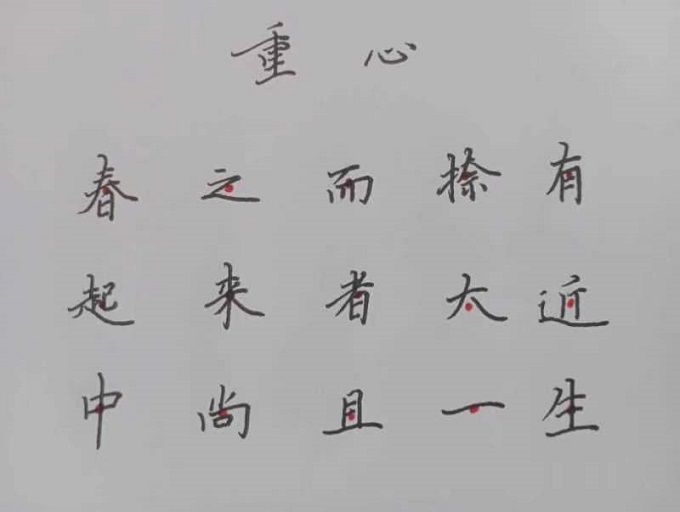 重 心
春 之 而 搽 有
起 来 者 太 近
中 尚 且 一 生